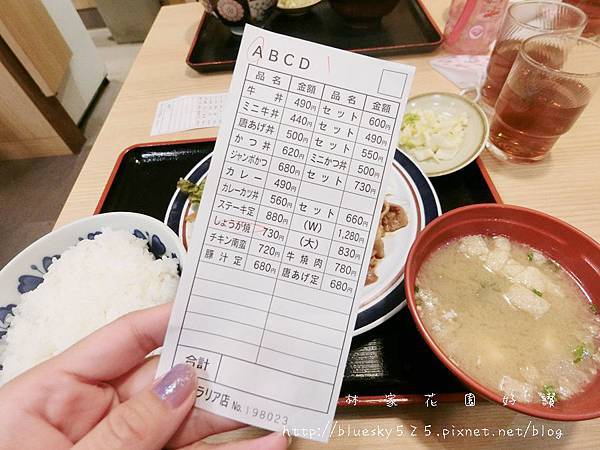 ABCD
品名 金額 品名 金額
牛丼 490円 セット 600円
ミニ牛丼 440円 セット 490円
唐あげ丼 500円 セット 550円
かつ丼 620円 ミニかつ丼 500円
ジャンボかつ 680円 セット 730円
カレー 490円
カレーカツ丼 560円 セット 660円
ステーキ定 880円 (W) 1,280円
しょうが焼 730円 (大) 830円
チキン南蛮 720円 牛焼肉 780円
豚汁定 680円 唐あげ定 680円
合計
ラリア店 No.198023
林家花園好讚
http://bluesky525.pixnet.net/blog